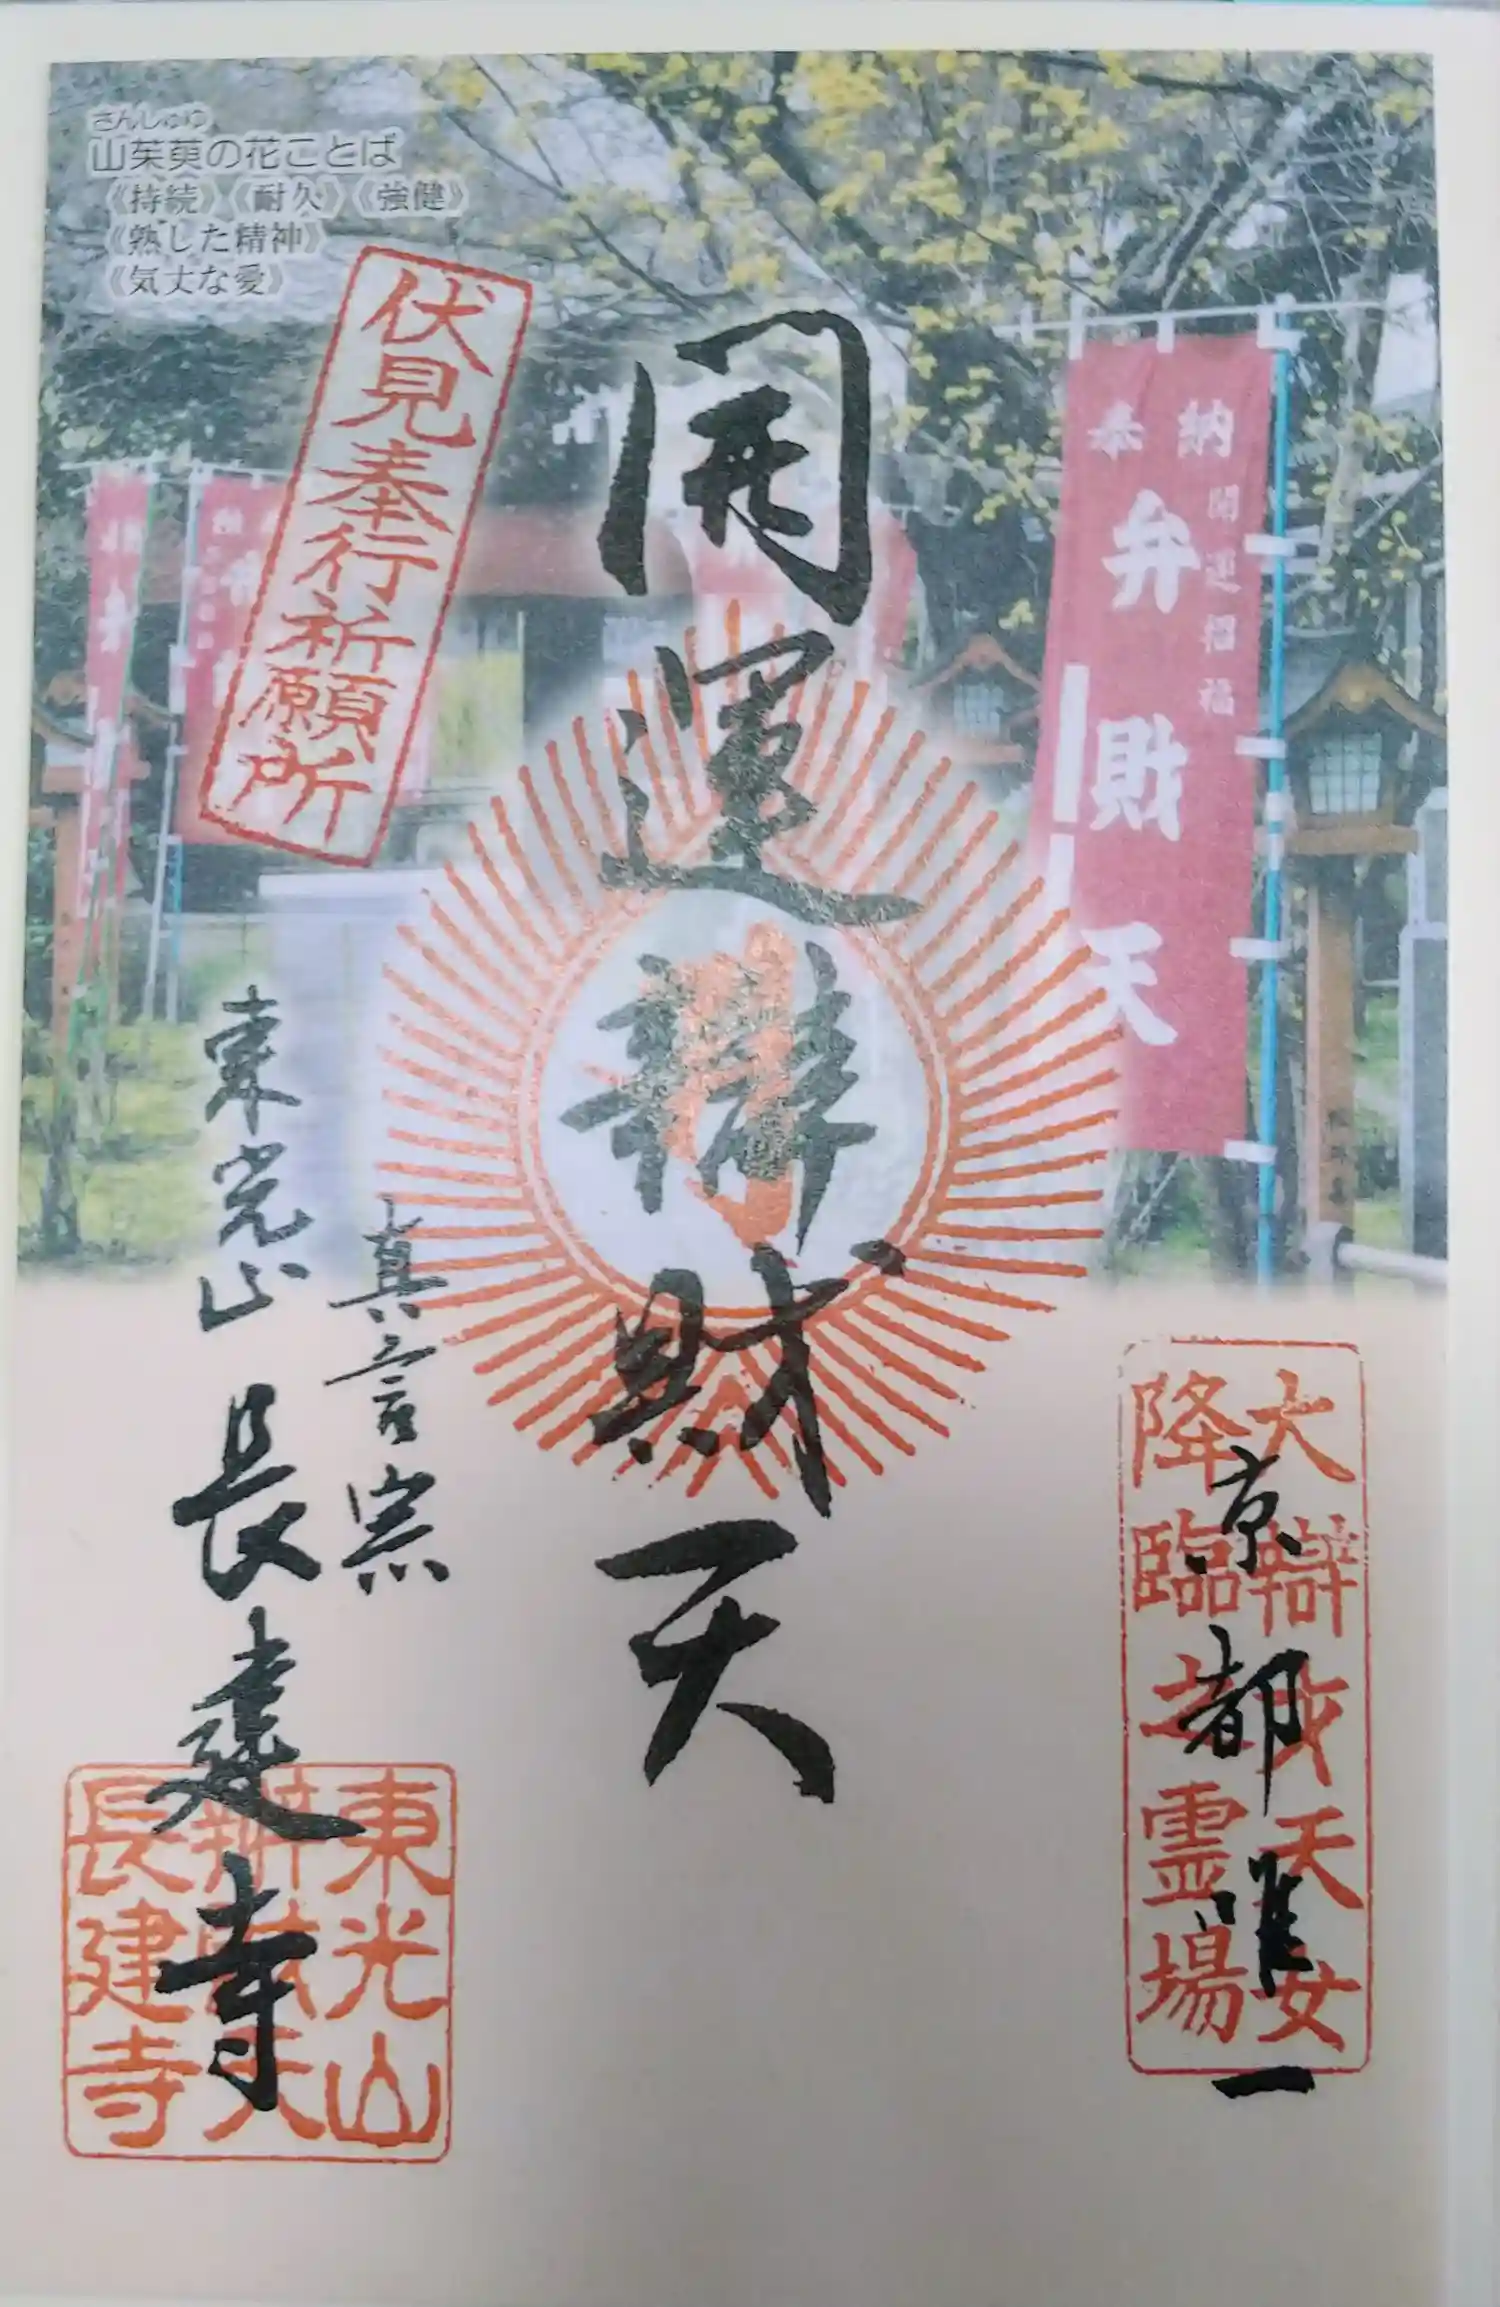 さんしゅゆ
山茱萸の花ことば
《持続》《耐久》《強健》
《熟した精神》
《気丈な愛》
伏見奉行祈願所
開運辯財天
奉納
開運招福
弁財天
大辯財天女
降臨之霊場
京都唯一
真言宗
東光山長建寺
東光山
辨財天
長建寺